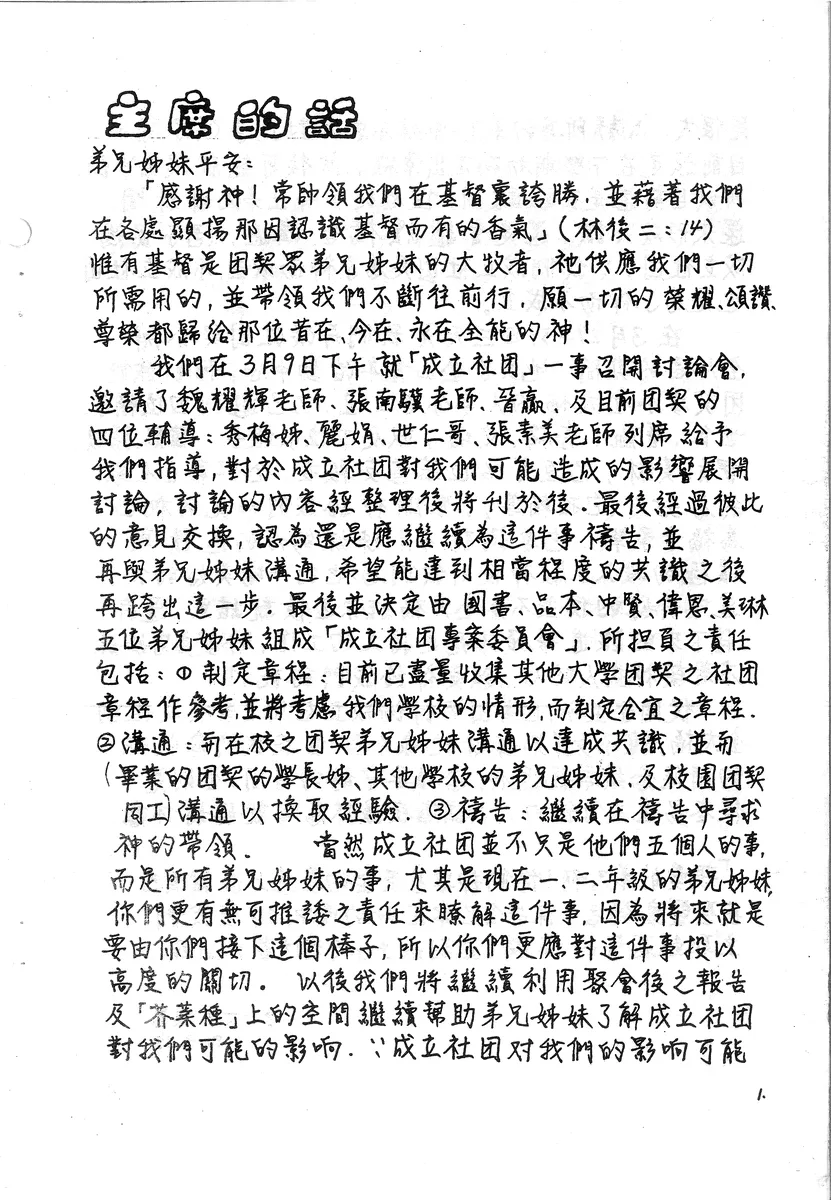 主席的話
弟兄姊妹平安:
「感謝神！常帥領我們在基督裏誇勝．並藉著我們
在各處顯揚那因認識基督而有的香氣」(林後二：14)
惟有基督是团契眾弟兄姊妹的大牧者，祂供應我們一切
所需用的，並帶領我們不斷往前行．願一切的榮耀、頌讚、
尊榮都歸給那位昔在、今在、永在全能的神！
我們在3月9日下午就「成立社团」一事召開討論會，
邀請了魏耀輝老師、張南驥老師、晉贏、及目前团契的
四位輔導：秀梅姊、麗娟、世仁哥、張素美老師列席給予
我們指導，對於成立社团對我們可能造成的影響展開
討論，討論的內容經整理後將刊於後．最後經過彼此
的意見交換，認為還是應繼續為這件事禱告，並
再與弟兄姊妹溝通，希望能達到相當程度的共識之後
再跨出這一步．最後並決定由國書、品本、中賢、偉恩、美琳
五位弟兄姊妹組成「成立社团專案委員會」．所担負之責任
包括：①制定章程：目前已盡量收集其他大學团契之社团
章程作參考，並將考慮我們學校的情形，而制定合宜之章程．
②溝通：而在校之团契弟兄姊妹溝通以達成共識，並而
(畢業的团契的學長姊、其他學校的弟兄姊妹、及校園团契
同工)溝通以換取經驗．③禱告：繼續在禱告中尋求
神的帶領．　當然成立社团並不只是他們五個人的事，
而是所有弟兄姊妹的事，尤其是現在一、二年級的弟兄姊妹，
你們更有無可推諉之責任來瞭解這件事，因為將來就是
要由你們接下這個棒子，所以你們更應對這件事投以
高度的關切。以後我們將繼續利用聚會後之報告
及「芥菜種」上的空間繼續幫助弟兄姊妹了解成立社团
對我們可能的影响．∵成立社团对我們的影响可能
1.